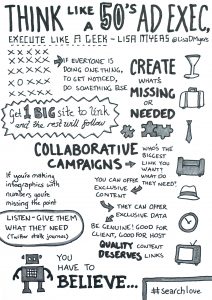 THINK LIKE A 50'S AD EXEC,
EXECUTE LIKE A GEEK - LISA MYERS @LisaDMyers
IF EVERYONE IS
DOING ONE THING,
TO GET NOTICED,
DO SOMETHING ELSE
CREATE
WHAT'S
MISSING
OR
NEEDED
Get 1 BIG site to link
and the rest will follow
COLLABORATIVE
CAMPAIGNS
WHO'S THE
BIGGEST
LINK YOU
WANT?
WHAT DO
THEY NEED?
If you're making
infographics with
numbers, you're
missing the point
YOU CAN OFFER
EXCLUSIVE
CONTENT
THEY CAN OFFER
EXCLUSIVE DATA
LISTEN - GIVE THEM
WHAT THEY NEED
(Twitter stalk journos)
BE GENUINE! GOOD FOR
CLIENT, GOOD FOR HOST
QUALITY CONTENT
DESERVES LINKS
YOU
HAVE TO
BELIEVE...
#searchlove